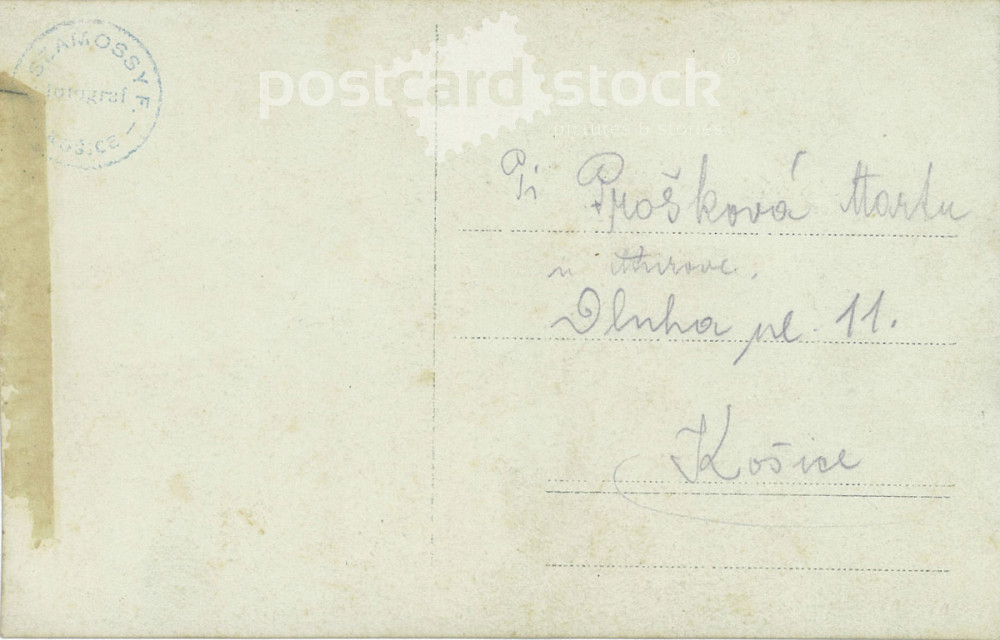 SZAMOSSY F.
fotograf
KOŠICE
postcard stock
pictures & stories
Pi Prošková Marta
Dluha ul. 11.
Košice